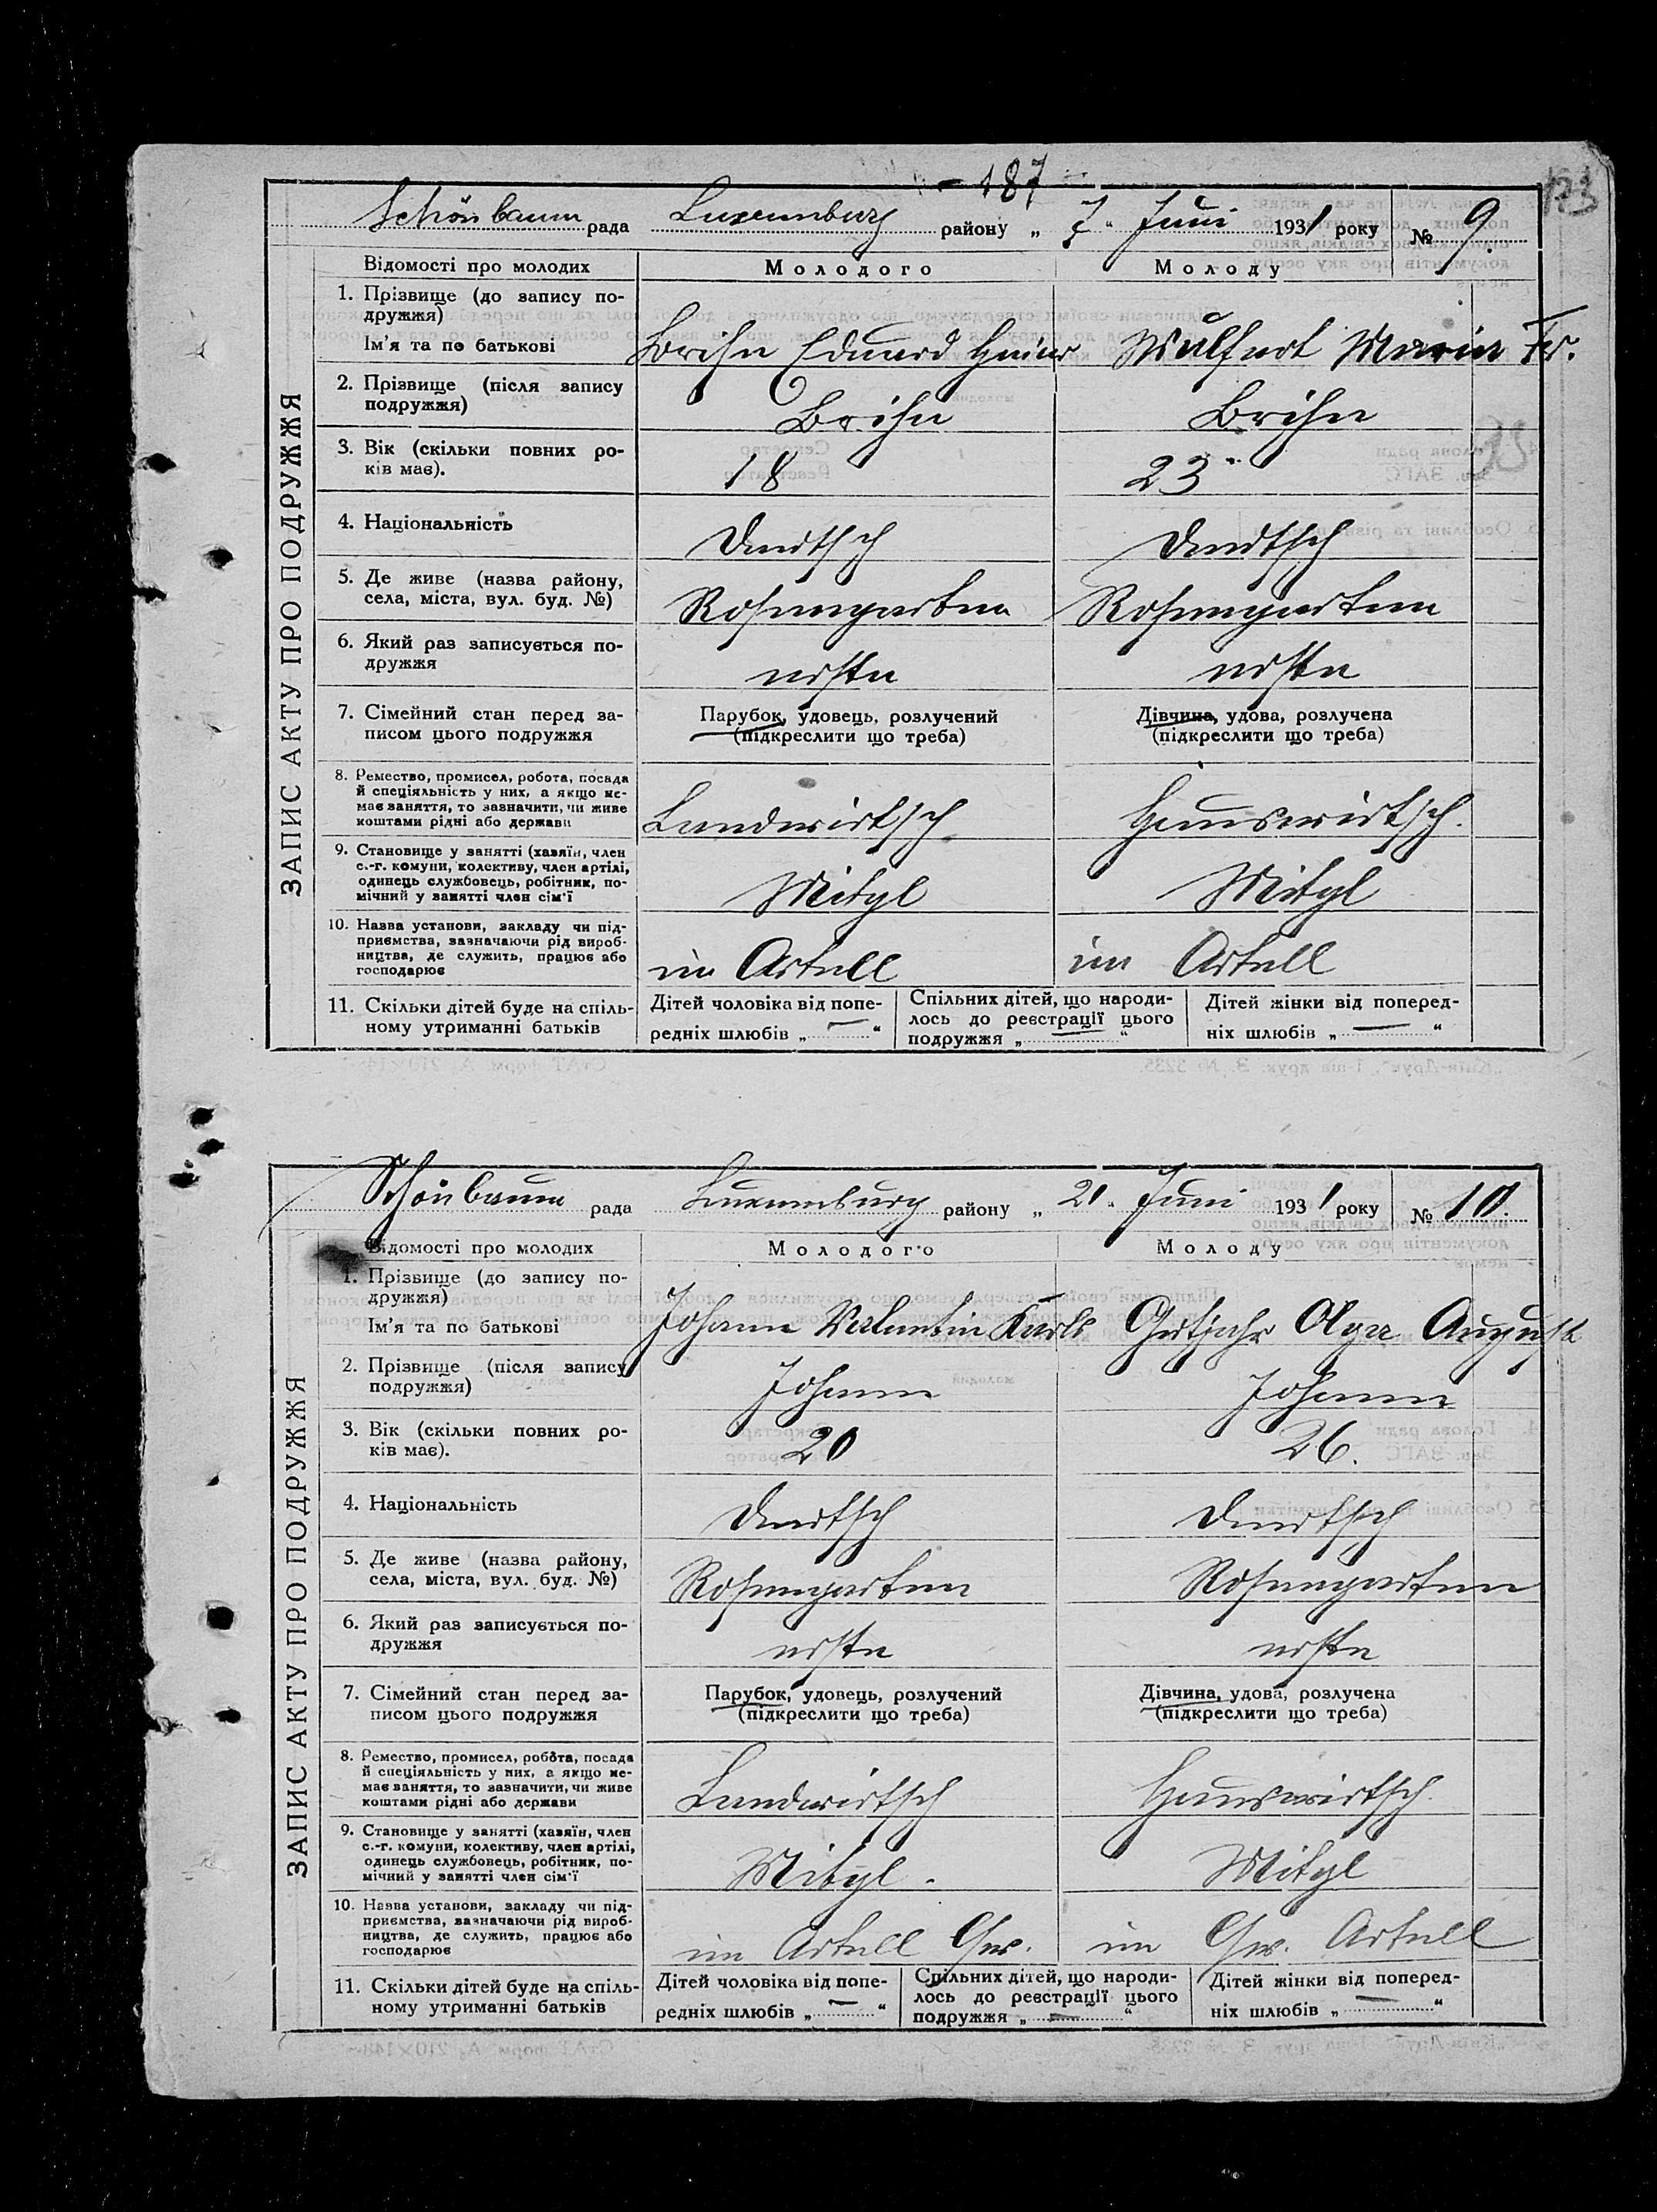 - 187 -
Schönbaum рада Luxemburg району „ 7 “ Juni 1931 року № 9.
Відомості про молодих Молодого Молоду
ЗАПИС АКТУ ПРО ПОДРУЖЖЯ
1. Прізвище (до запису по-
дружжя)
Ім’я та по батькові Brihn Eduard Heinr Wulfert Maria Fr.
2. Прізвище (після запису
подружжя) Brihn Brihn
3. Вік (скільки повних ро-
ків має). 18 23
4. Національність Deutsch Deutsch
5. Де живе (назва району,
села, міста, вул. буд. №) Rosengarten Rosengarten
6. Який раз записується по-
дружжя erste erste
7. Сімейний стан перед за-
писом цього подружжя
Парубок, удовець, розлучений
(підкреслити що треба)
Дівчина, удова, розлучена
(підкреслити що треба)
8. Ремество, промисел, робота, посада
й спеціяльність у них, а якщо не-
має заняття, то зазначити, чи живе
коштами рідні або держави Landwirtsch Hauswirtsch.
9. Становище у занятті (хазяїн, член
с.-г. комуни, колективу, член артілі,
одинець службовець, робітник, по-
мічний у занятті член сім’ї Mitgl Mitgl
10. Назва установи, закладу чи під-
приємства, зазначаючи рід вироб-
ництва, де служить, працює або
господарює im Artell im Artell
11. Скільки дітей буде на спіль-
ному утриманні батьків
Дітей чоловіка від попе-
редніх шлюбів „ — “
Спільних дітей, що народи-
лось до реєстрації цього
подружжя „ — “
Дітей жінки від поперед-
ніх шлюбів „ — “
Schönbaum рада Luxemburg району „ 21 “ Juni 1931 року № 10.
Відомості про молодих Молодого Молоду
ЗАПИС АКТУ ПРО ПОДРУЖЖЯ
1. Прізвище (до запису по-
дружжя)
Ім’я та по батькові Johann Valentin Karls Gutjahr Olga August
2. Прізвище (після запису
подружжя) Johann Johann
3. Вік (скільки повних ро-
ків має). 20 26.
4. Національність Deutsch Deutsch
5. Де живе (назва району,
села, міста, вул. буд. №) Rosengarten Rosengarten
6. Який раз записується по-
дружжя erste erste
7. Сімейний стан перед за-
писом цього подружжя
Парубок, удовець, розлучений
(підкреслити що треба)
Дівчина, удова, розлучена
(підкреслити що треба)
8. Ремество, промисел, робота, посада
й спеціяльність у них, а якщо не-
має заняття, то зазначити, чи живе
коштами рідні або держави Landwirtsch Hauswirtsch.
9. Становище у занятті (хазяїн, член
с.-г. комуни, колективу, член артілі,
одинець службовець, робітник, по-
мічний у занятті член сім’ї Mitgl. Mitgl
10. Назва установи, закладу чи під-
приємства, зазначаючи рід вироб-
ництва, де служить, працює або
господарює im Artell im Artell
11. Скільки дітей буде на спіль-
ному утриманні батьків
Дітей чоловіка від попе-
редніх шлюбів „ — “
Спільних дітей, що народи-
лось до реєстрації цього
подружжя „ — “
Дітей жінки від поперед-
ніх шлюбів „ — “